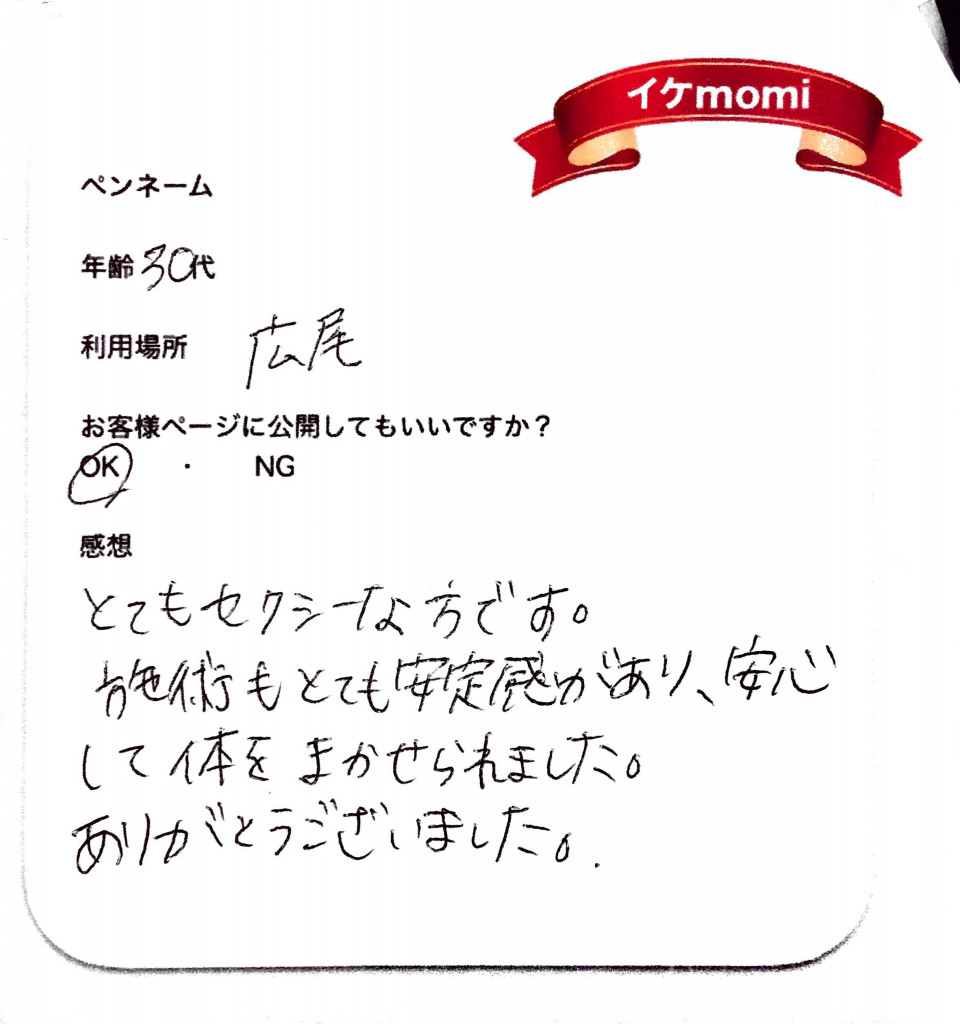 イケmomi
ペンネーム
年齢 30代
利用場所 広尾
お客様ページに公開してもいいですか？
OK ・ NG
感想
とてもセクシーな方です。
施術もとても安定感があり、安心
して体をまかせられました。
ありがとうございました。